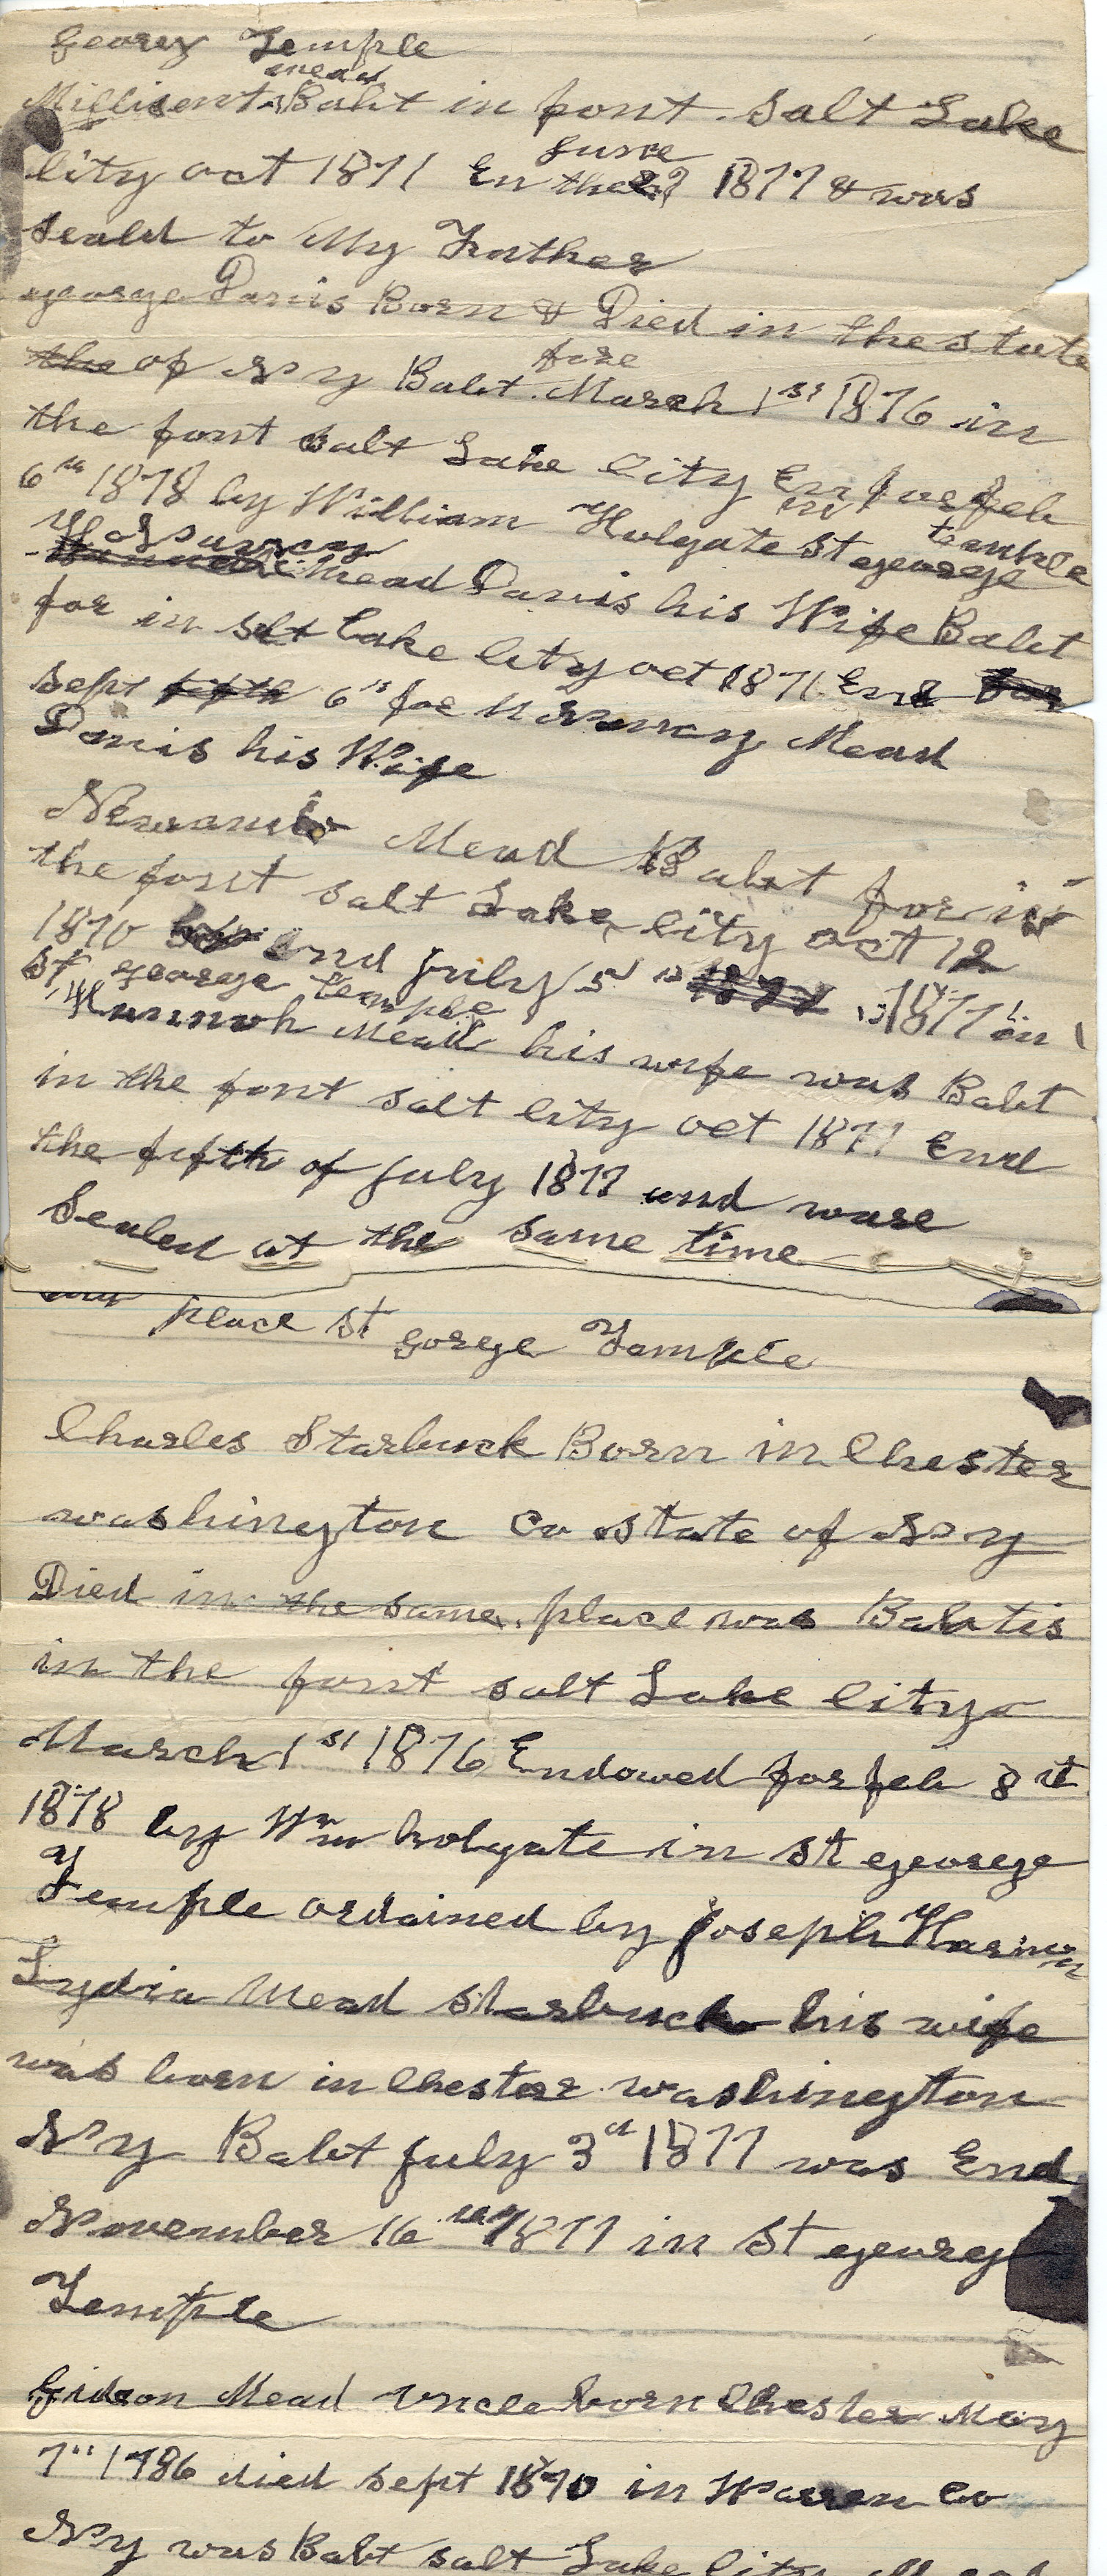 Georg Temple
mead
Millisent Babt in font Salt Lake
City oct 1871 En the 27 June 1877 & was
seald to My Father
george Davis Born & Died in the state
the of N Y Babt fore March 1st 1876 in
the font salt Lake City En for feb
6th 1878 by William Holgate in st george temple
Mead Davis his Wife Babt
for in salt Lake City oct 1871 End for
sept fifth 6th for Mead
Davis his Wife
Mead Babt for in
the font salt Lake City oct 12
1870 End july 5 1877 1877 in
St george temple
Hannah Mead his wife was Babt
in the font salt City oct 1871 End
the fifth of july 1877 and ware
Sealed at the same time
place St gorge Temple
Charles Starbuck Born in Chester
washington Co state of N Y
Died in the same place was Babtis
in the font salt Lake City
March 1st 1876 Endowed for feb 8 th
1878 by Wm holgate in st george
Temple ordained by Joseph
Lydia Mead Starbuck his wife
was born in Chester washington
N Y Babt july 3d 1877 was End
November 16 1877 in St georg
Temple
Gideon Mead uncle born Chester May
7th 1786 died sept 1870 in Warren Co
N Y was Babt salt Lake City